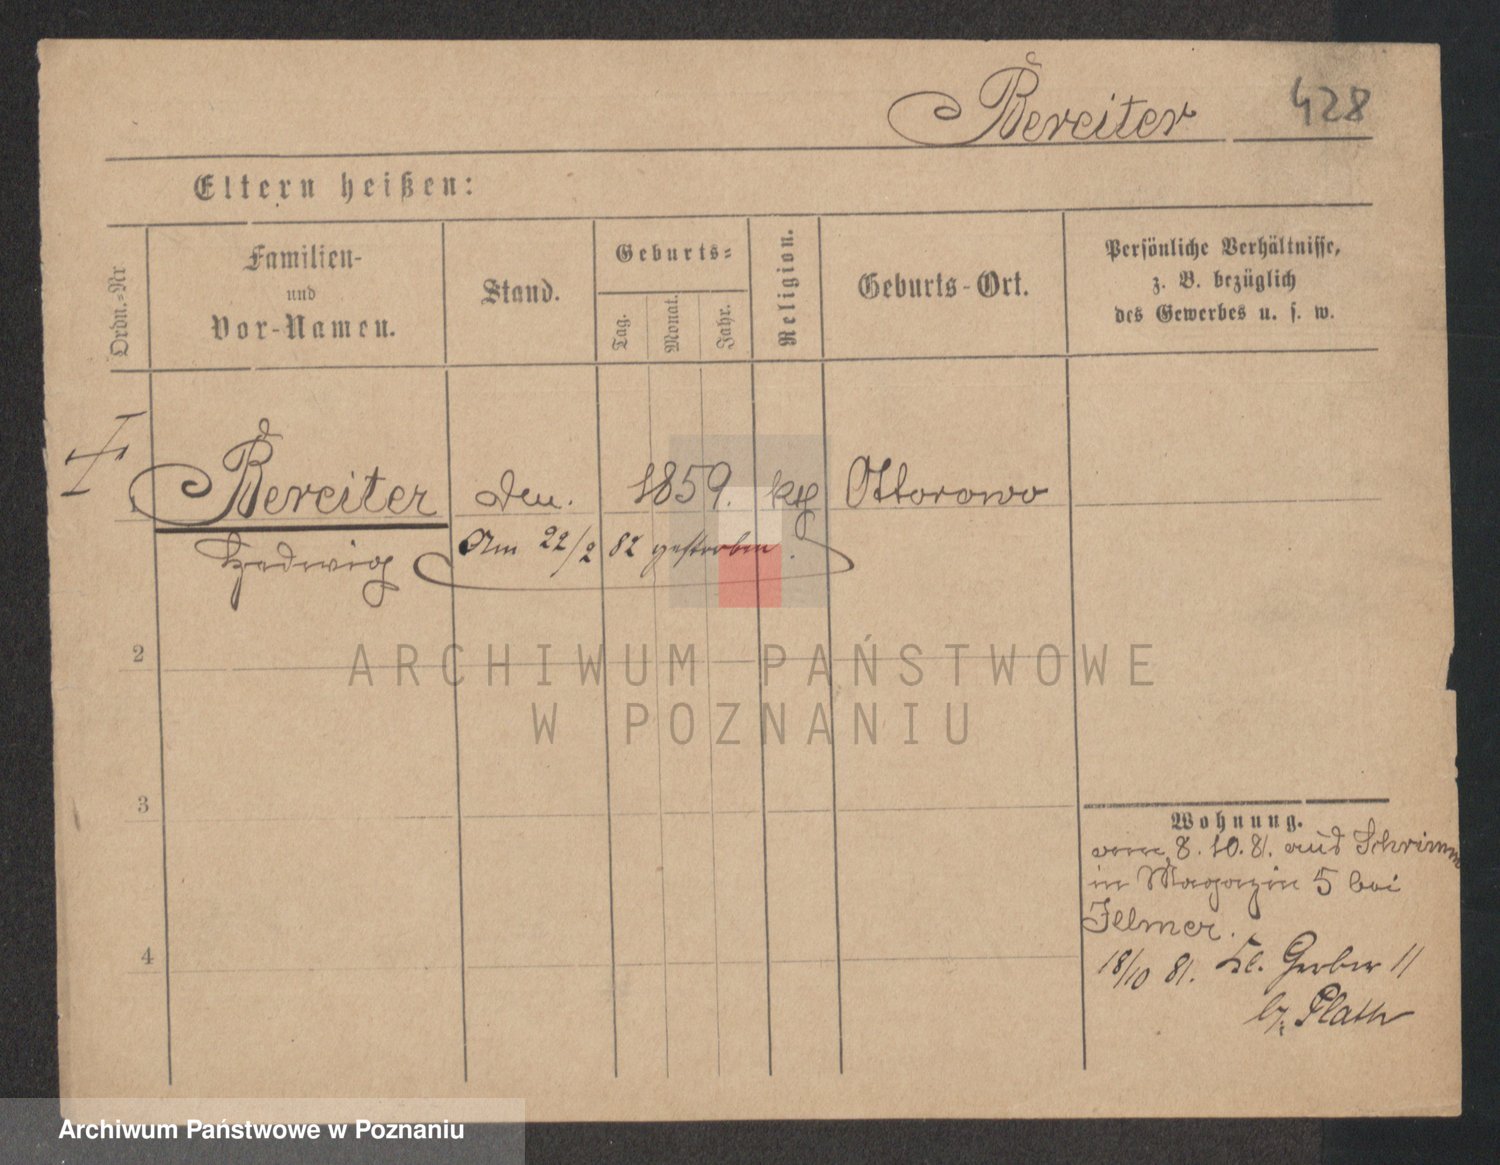 Bereiter 428
Eltern heißen:
Ordn.=Nr
Familien-
und
Vor-Namen.
Stand.
Geburts=
Tag.
Monat.
Jahr.
Religion.
Geburts-Ort.
Persönliche Verhältnisse,
z. B. bezüglich
des Gewerbes u. s. w.
Bereiter 1859. kth Ottorowo
Hedwig Am 22/2 82 gestorben.
2
ARCHIWUM PAŃSTWOWE
W POZNANIU
3
Wohnung.
8.10.81. aus Schrimm
in Magazin 5 bei
Illmer.
4
18/10 81. Kl. Gerber 11
b. Plath
Archiwum Państwowe w Poznaniu